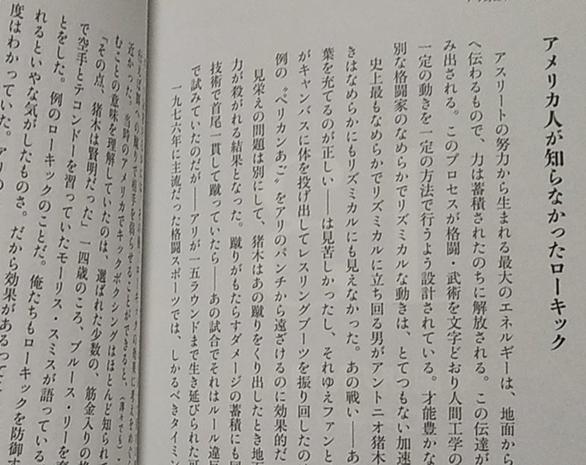 アメリカ人が知らなかったローキック
アスリートの努力から生まれる最大のエネルギーは、地面から
へ伝わるもので、力は蓄積されたのちに解放される。この伝達が
み出される。このプロセスが格闘・武術を文字どおり人間工学の
一定の動きを一定の方法で行うよう設計されている。才能豊かな
別な格闘家のなめらかでリズミカルな動きは、とてつもない加速
史上最もなめらかでリズミカルに立ち回る男がアントニオ猪木
きはなめらかにもリズミカルにも見えなかった。あの戦い――あ
葉を充てるのが正しい――は見苦しかったし、それゆえファンと
がキャンバスに体を投げ出してレスリングブーツを振り回したの
例の〝ペリカンあご〟をアリのパンチから遠ざけるのに効果的だ
見栄えの問題は別にして、猪木はあの蹴りをくり出したとき地面
力が殺がれる結果となった。蹴りがもたらすダメージの蓄積にも
技術で首尾一貫して蹴っていたら――あの試合でそれはルール違反
で試みていたのだが――アリが一五ラウンドまで生き延びられた
一九七六年に主流だった格闘スポーツでは、しかるべきタイミン
近かった。当時のアメリカでキックボクシングはほとんど知られて
むことの意味を理解していたのは、選ばれた少数の、筋金入りの
「その点、猪木は賢明だった」一四歳のころ、ブルース・リーを
で空手とテコンドーを習っていたモーリス・スミスが語っている
とをした。例のローキックのことだ。俺たちもローキックを防御す
れるといやな気がしたものさ。だから効果があるって
度はわかっていた。アリの